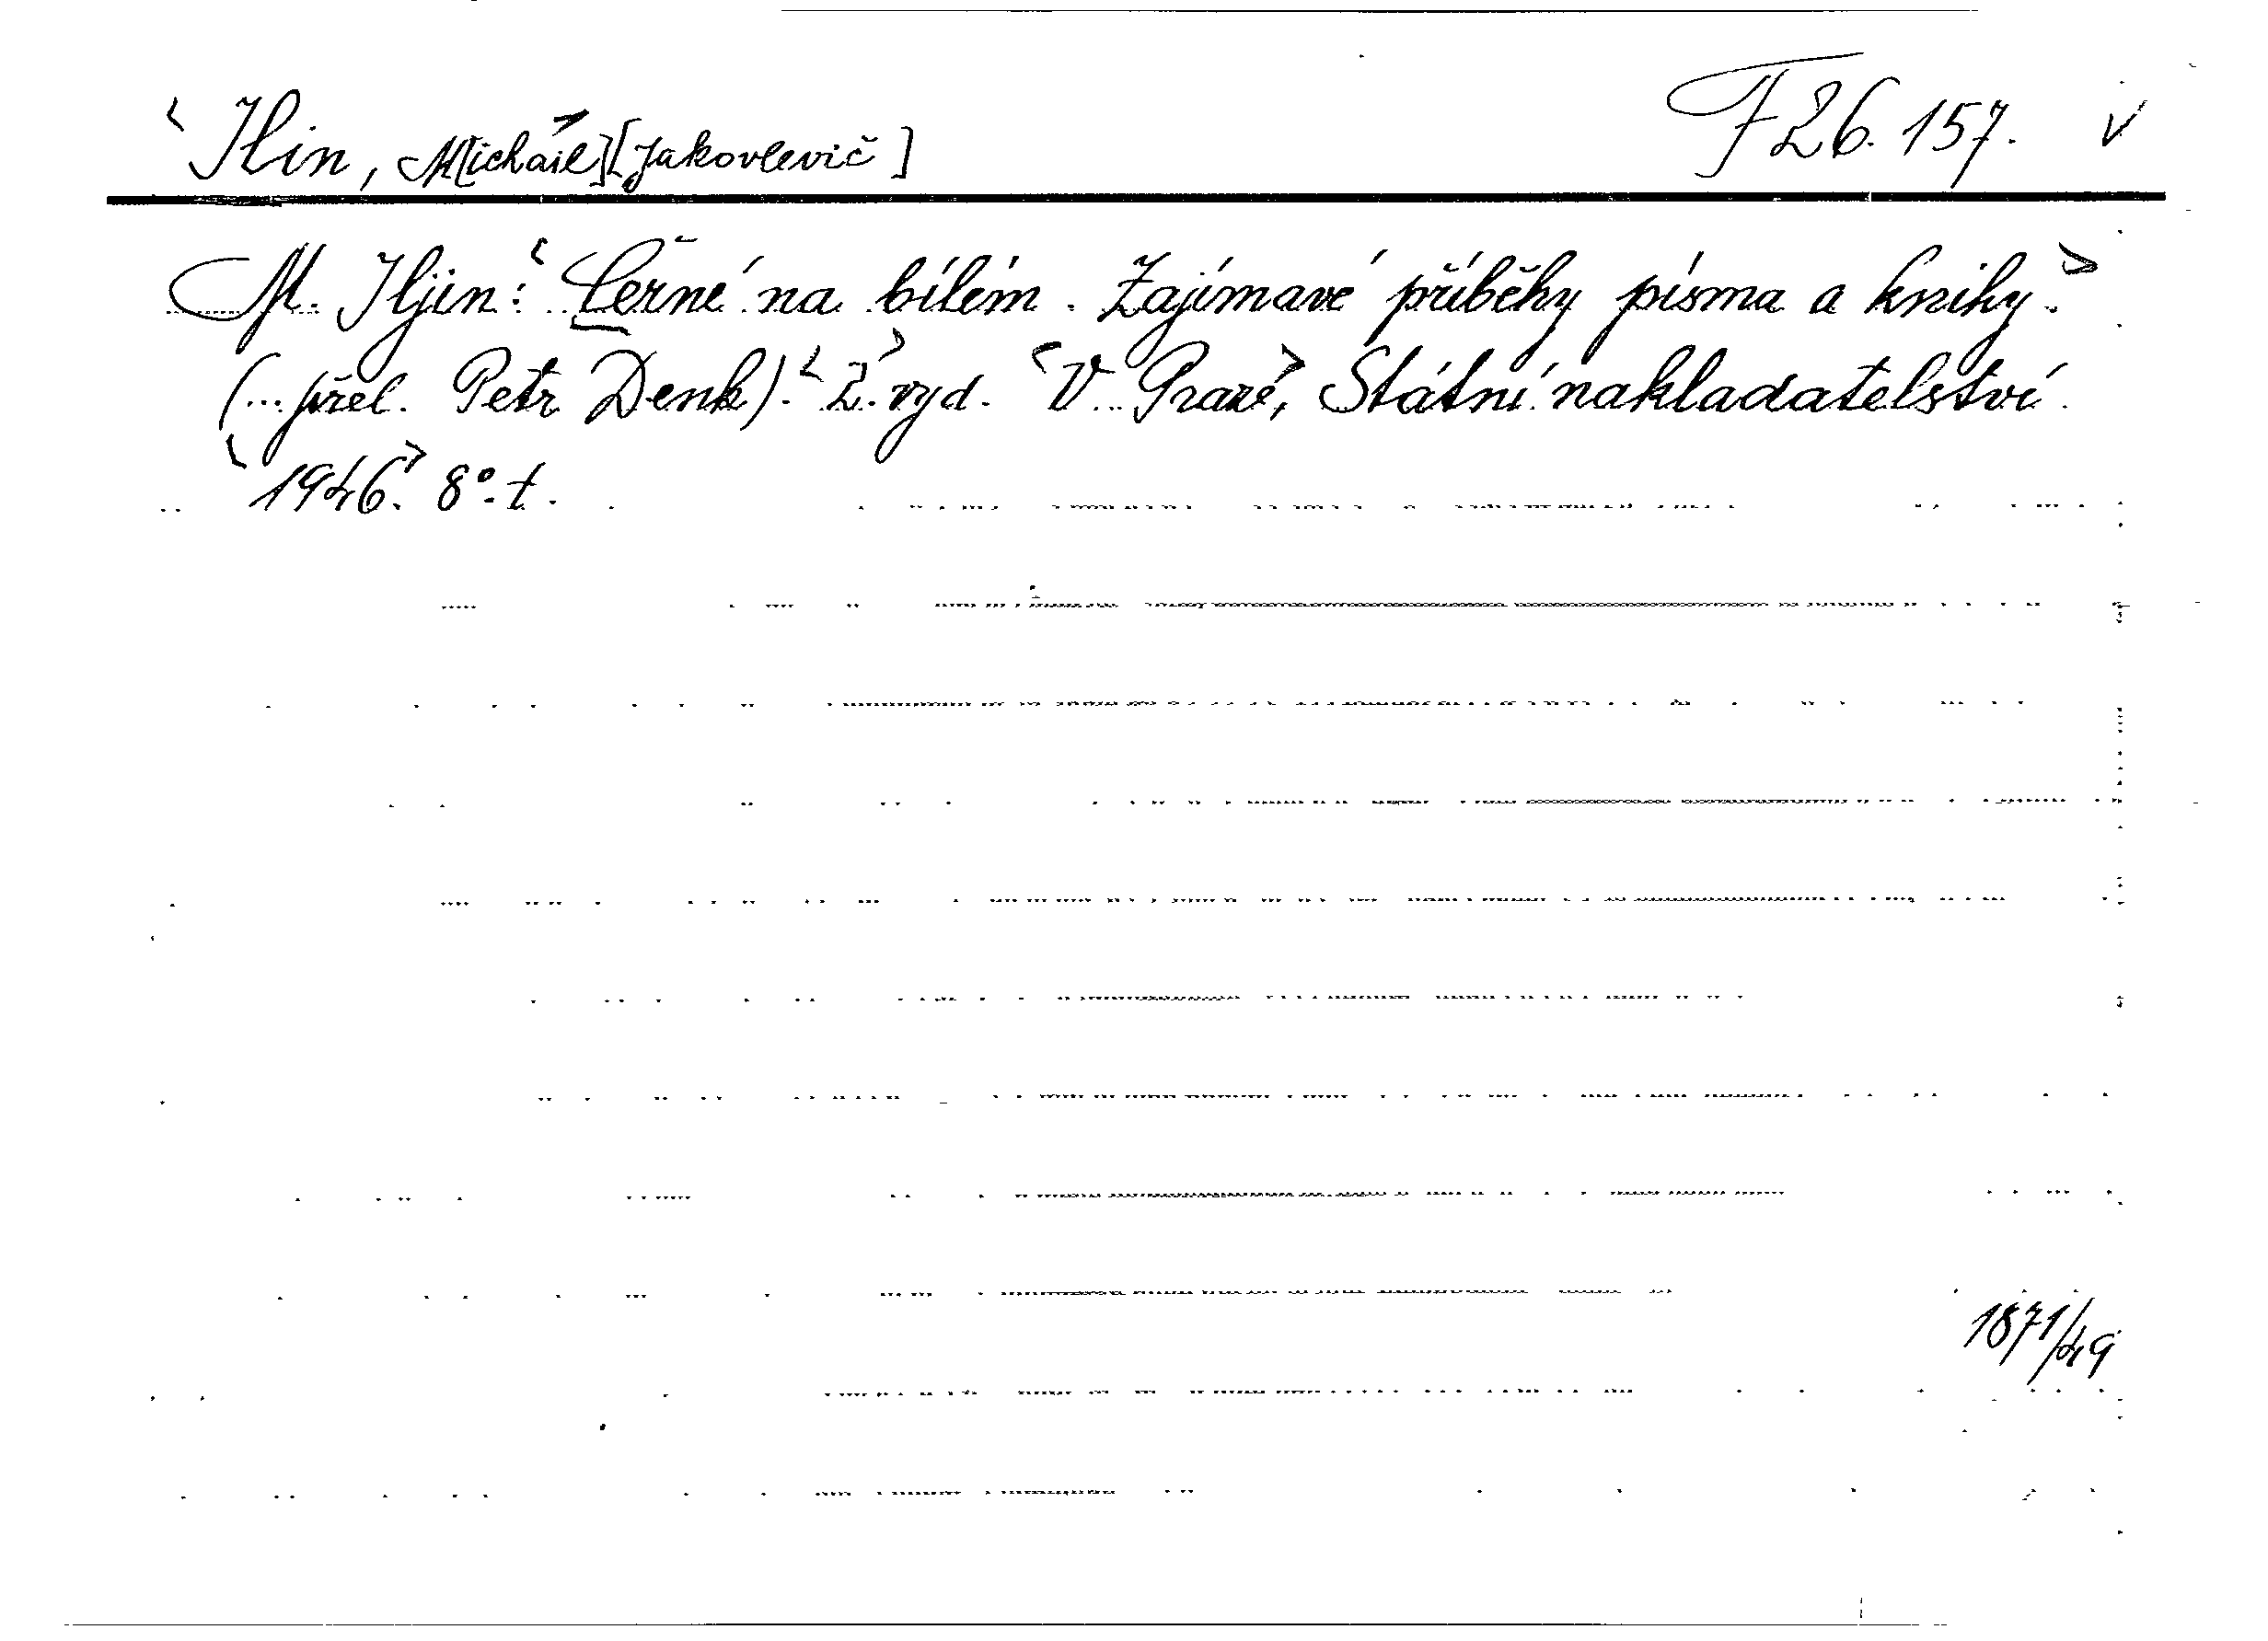 Ilin, M[ichail] [Jakovlevič] F 26.157. V
M. Iljin: Černé na bílém. Zajímavé příběhy písma a knihy.
(...přel. Petr Denk). 2. vyd. V Praze, Státní nakladatelství
1946. 8°. t.
1871/49